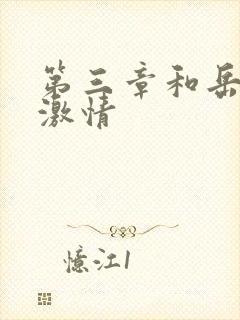 第三章和岳
激情
憶江1